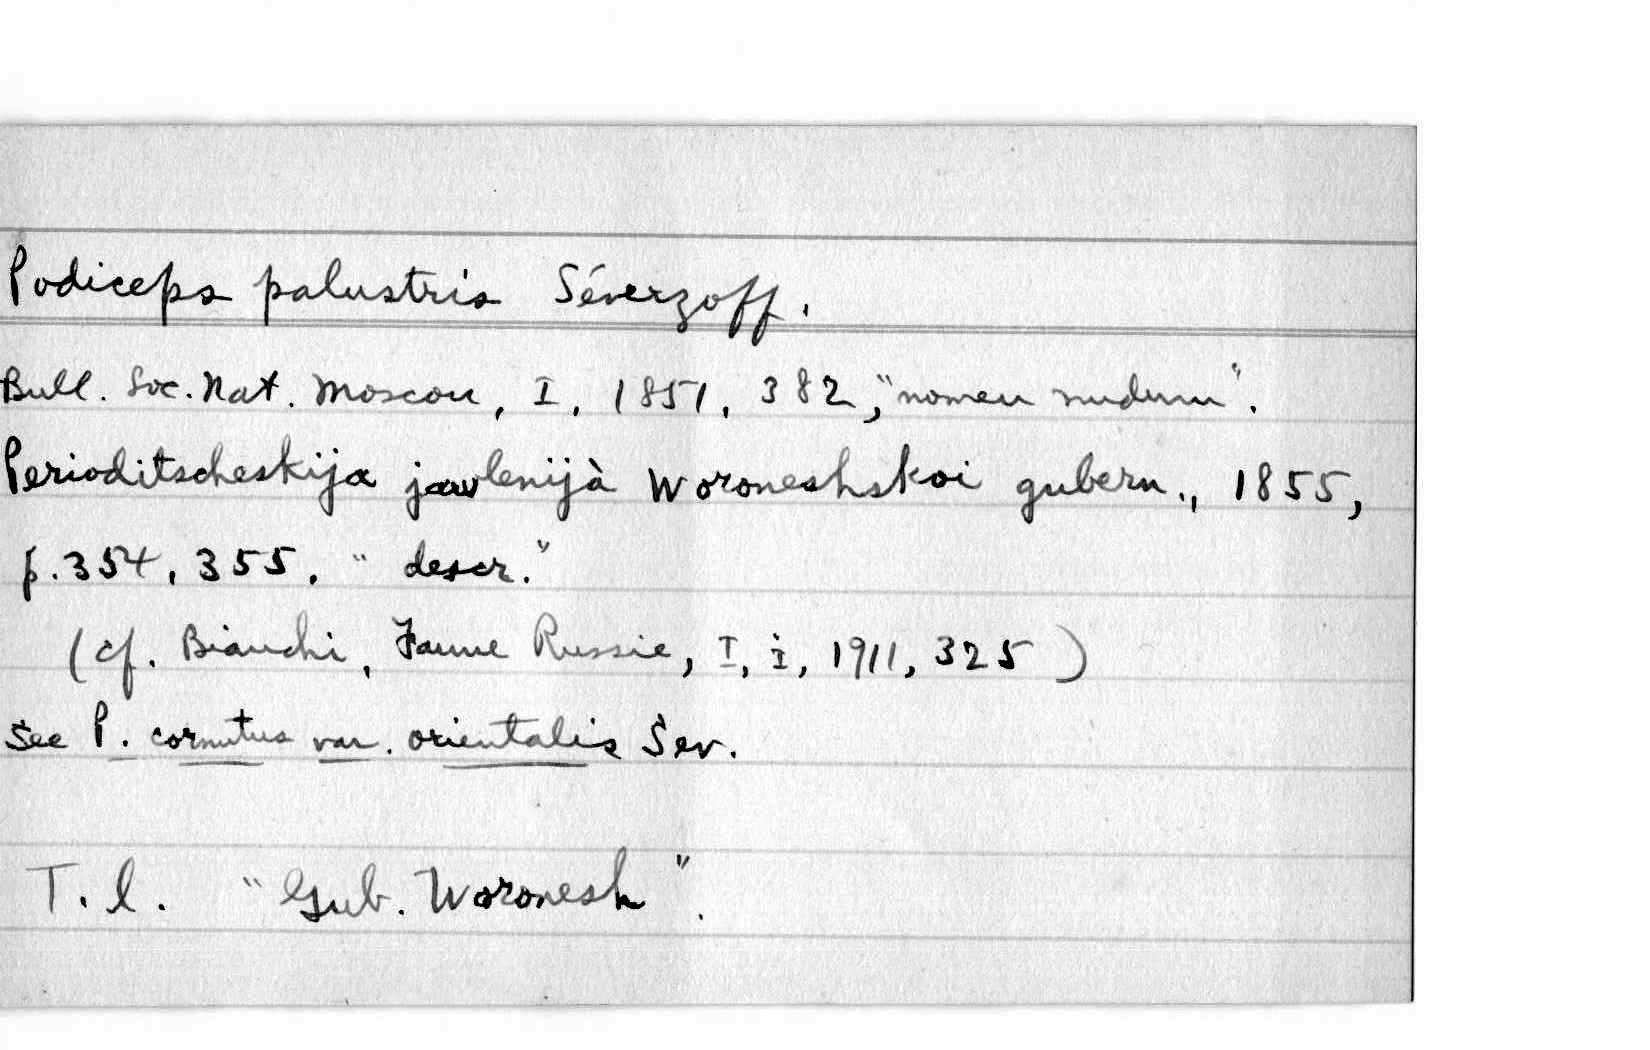 Podiceps palustris Séverzoff.
Bull. Soc. Nat. Moscou, I, 1851, 382, "nomen nudum".
Perioditscheskija jawlenijà Woroneshskoi gubern., 1855,
p. 354, 355. "descr."
(cf. Bianchi, Faune Russie, I, i, 1911, 325)
See P. cornutus var. orientalis Sev.
T. l. "Gub. Woronesh".